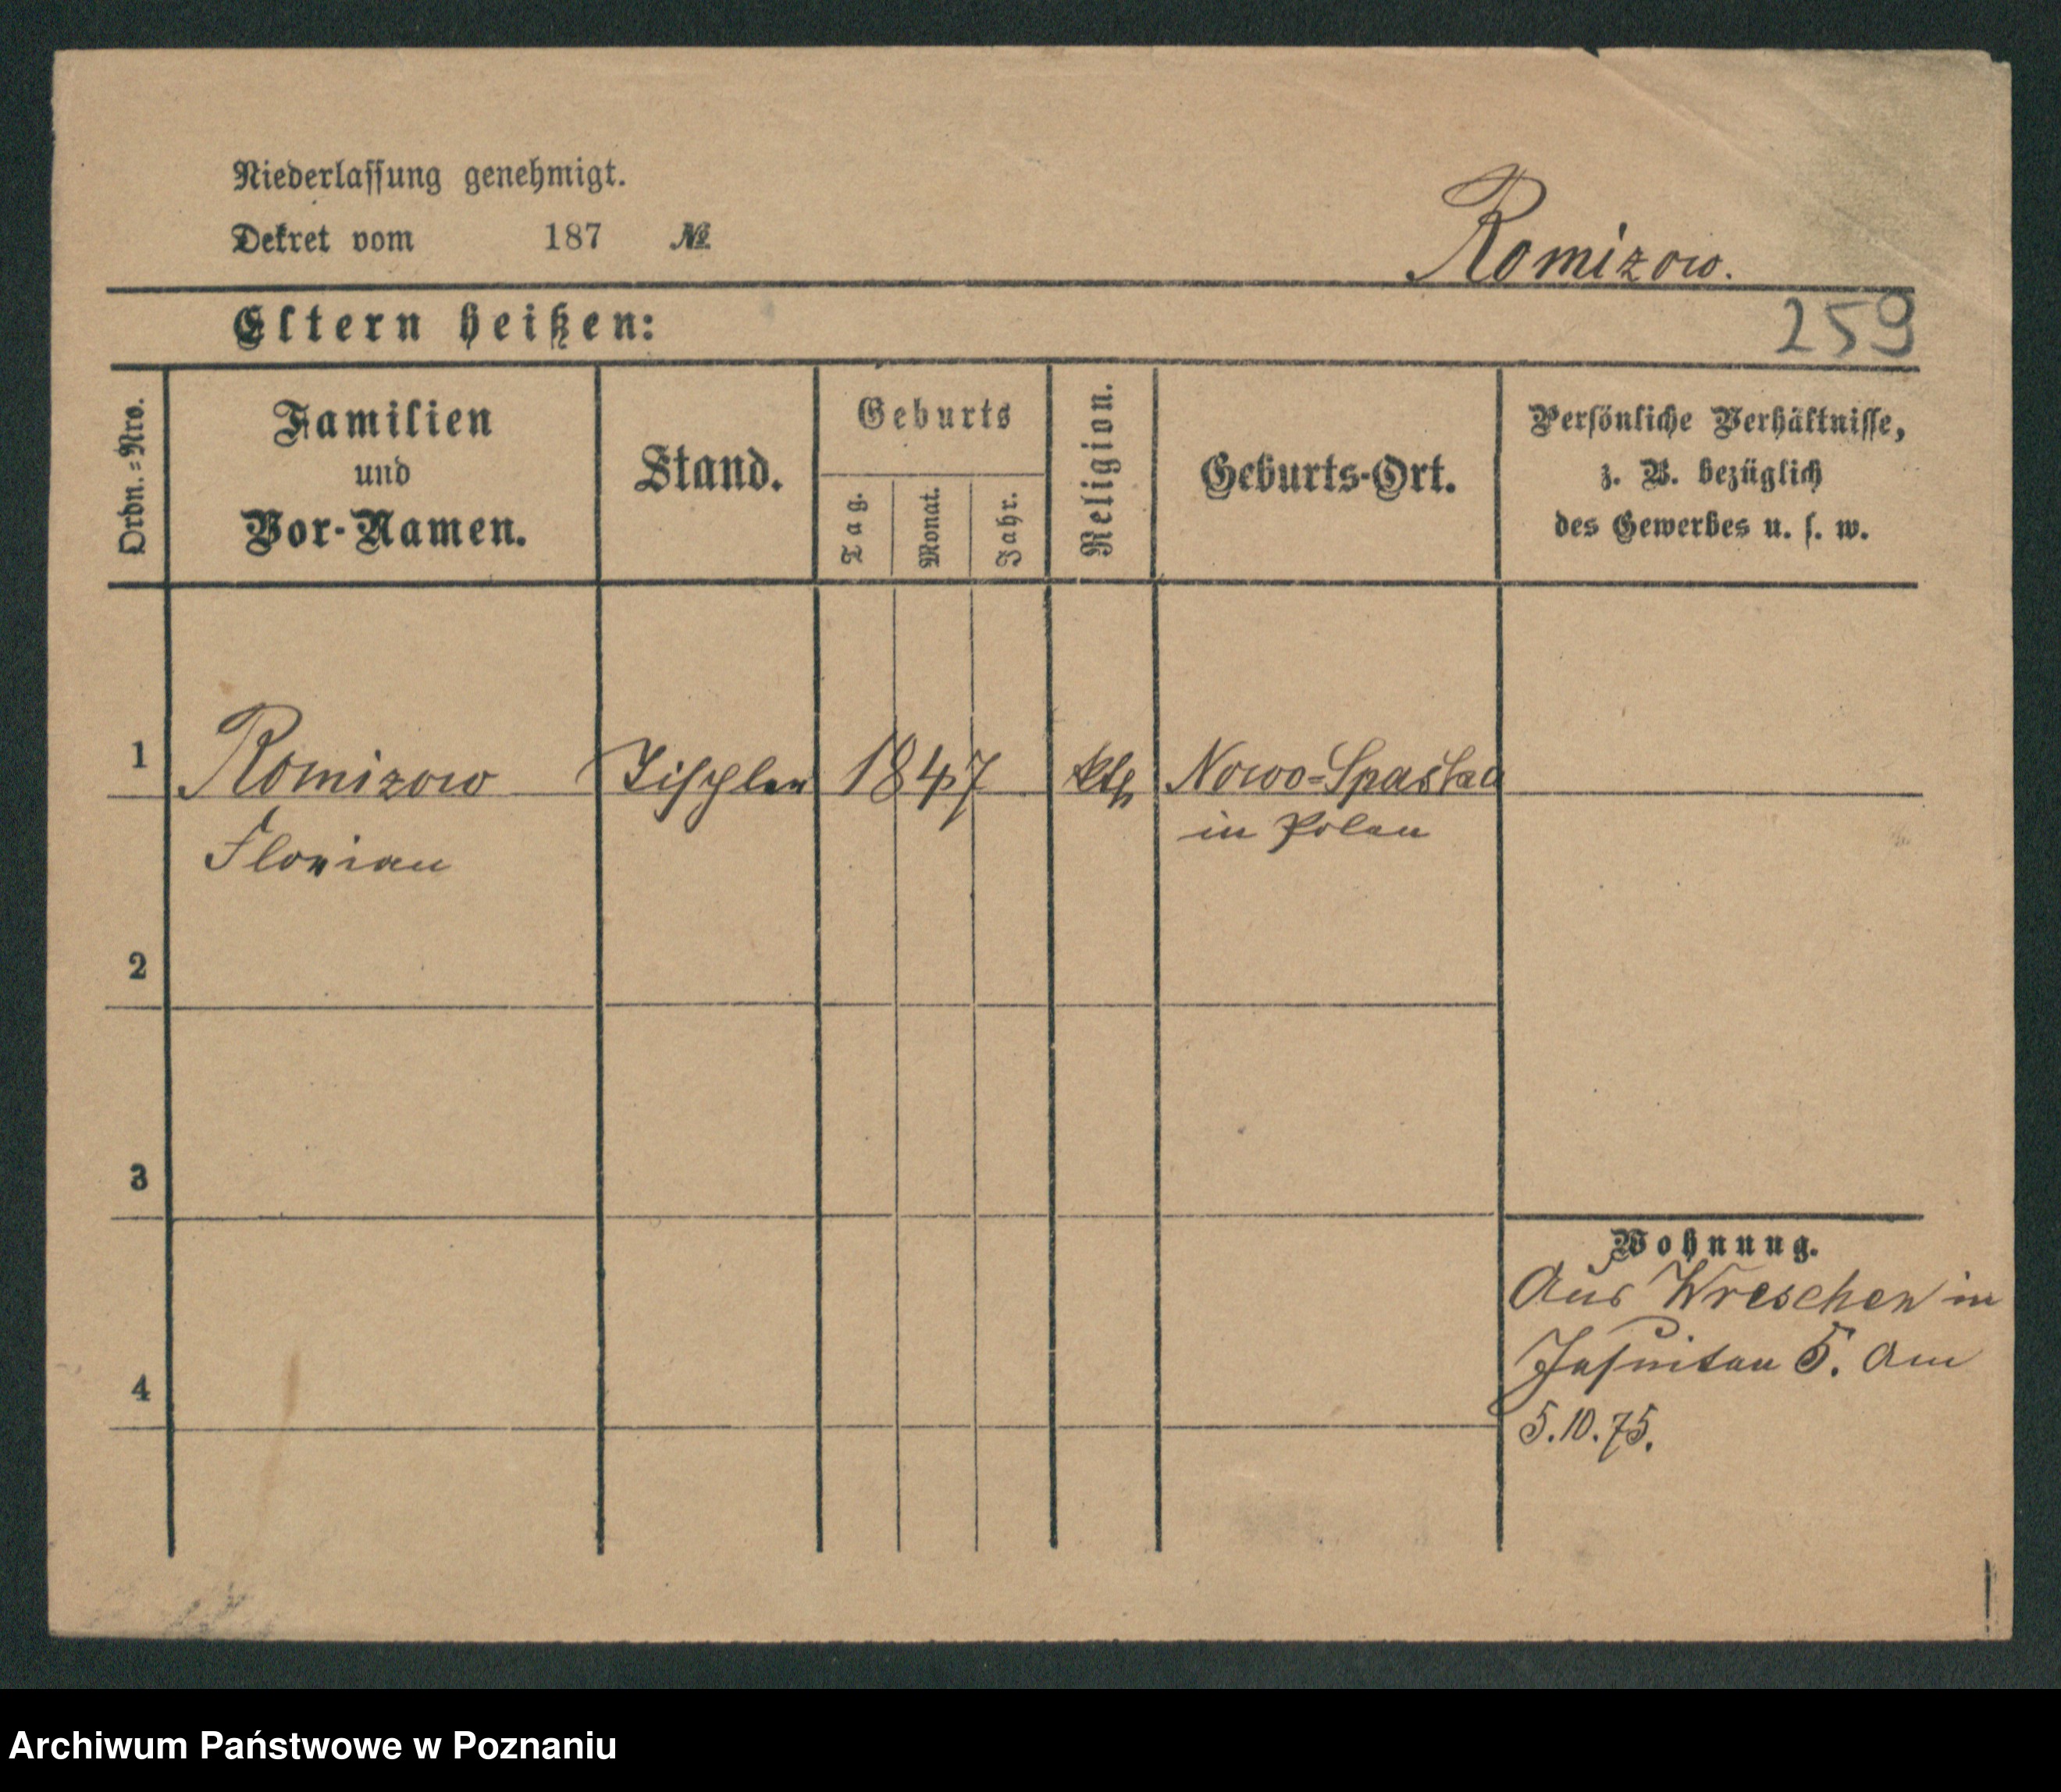 Niederlassung genehmigt.
Dekret vom 187 №
Romizow.
Eltern heißen:
259
Ordn.=Nro.
Familien
und
Vor-Namen.
Stand.
Geburts
Tag.
Monat.
Jahr.
Religion.
Geburts-Ort.
Persönliche Verhältnisse,
z. B. bezüglich
des Gewerbes u. s. w.
1 Romizow Tischler 1847 kth Nowo=
Florian in Polen
2
3
4
Wohnung.
Aus Wreschen in
Jesuiten 5. am
5.10.75.
Archiwum Państwowe w Poznaniu